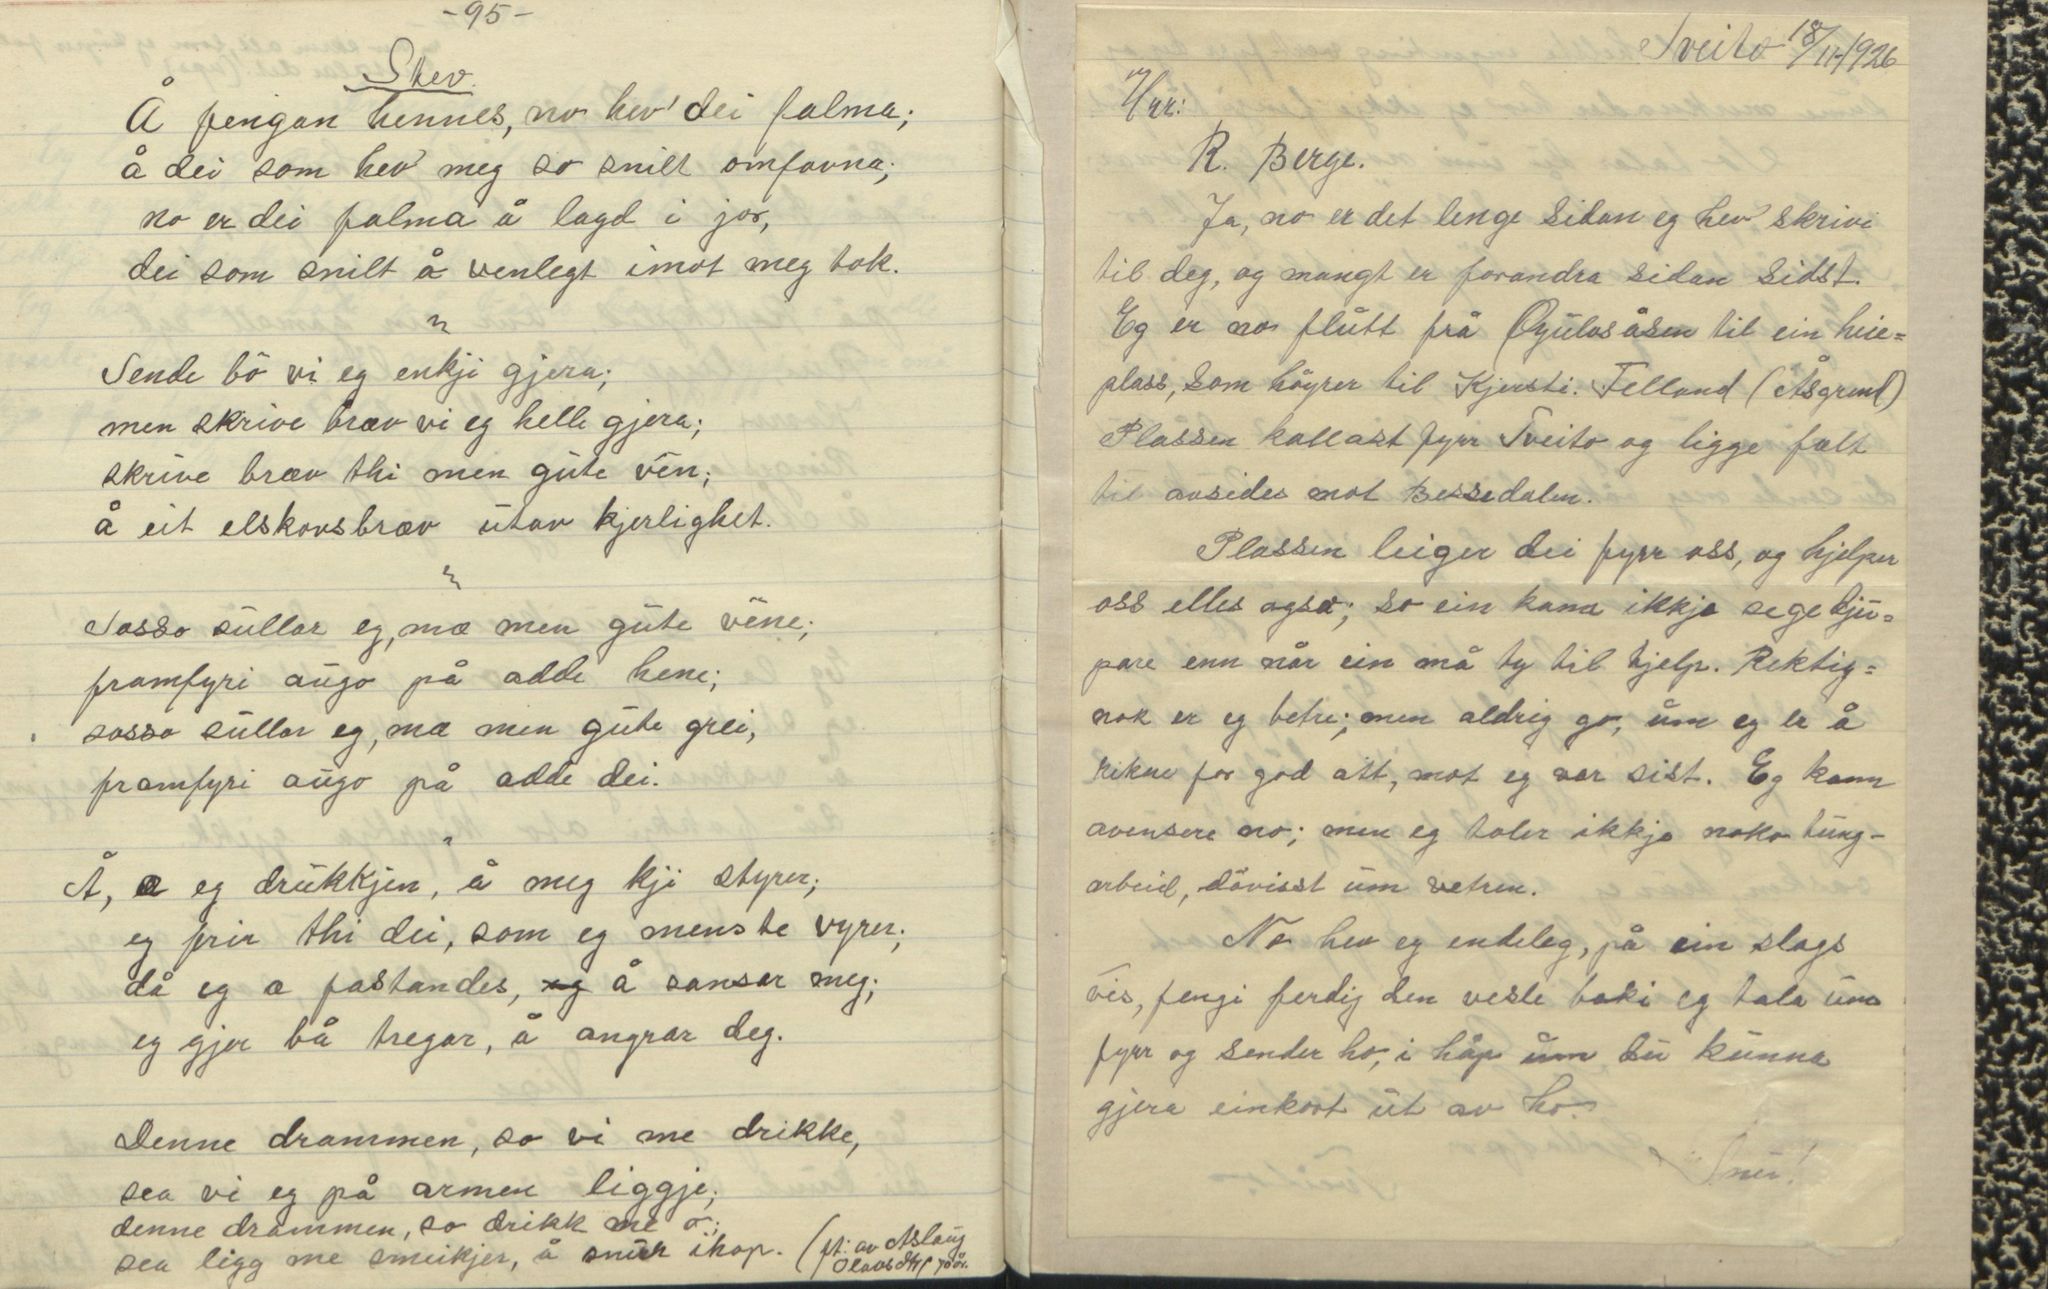 -95-
Stev.
Å fengan hennes, no hev' dei falma;
å dei som hev' meg so snilt omfavna;
no er dei falma å lagd i jor,
dei som snilt å venlegt imot meg tok.
"
Sende bö vi eg enkji gjera;
men skrive bræv vi eg helle gjera;
skrive bræv thi men gūte vēn;
å eit elskovsbræv ūtav kjerlighet.
"
Sosso sūllar eg, mæ men gūte vēne;
framfyri aūgo på adde hene;
sosso sūllar eg, mæ men gūte grei,
framfyri aūgo på adde dei.
"
Å, æ eg drūkkjen, å meg kji styrer;
eg frir thi dei, som eg menste vyrer;
då eg æ fastandes, å sansar meg;
eg gjer bå tregar, å angrar deg.
Denne drammen, so vi me drikke,
sea vi eg på armen liggje;
denne drammen, so drikk me o;
sea ligg me smeikjer, å snūr ihop. (ft. av Aslaūg
Olavsdtr 70 år.
Tveito 18/11-1926
Hrr:
R. Berge.
Ja, no er det lenge sidan eg hev' skrivi
til deg, og mangt er forandra sidan sidst.
Eg er no flūtt frå Øyūlosåsen til ein heie=
plass, som höyrer til Kjersti. Felland (Åsgrend)
Plassen kallast fyrr Tveito og ligge falt
til avsides mot Bessedalen.
Plassen leiger dei fyrr oss, og hjelper
oss elles også; so ein kann ikkje sege djū=
pare enn når ein må ty til hjelp. Rektig=
nok er eg betre; men aldrig go, ūm eg er å
rikne for god att, mot eg var sist. Eg kann
avensere no; men eg toler ikkje noko tūng-
arbeid, dövisst ūm vetren.
No hev eg endeleg, på ein slags
vis, fengi ferdig den vesle boki eg tala ūm
fyrr og sender ho, i håp ūm dū kūnna
gjera einkort ūt av ho.
Snū!